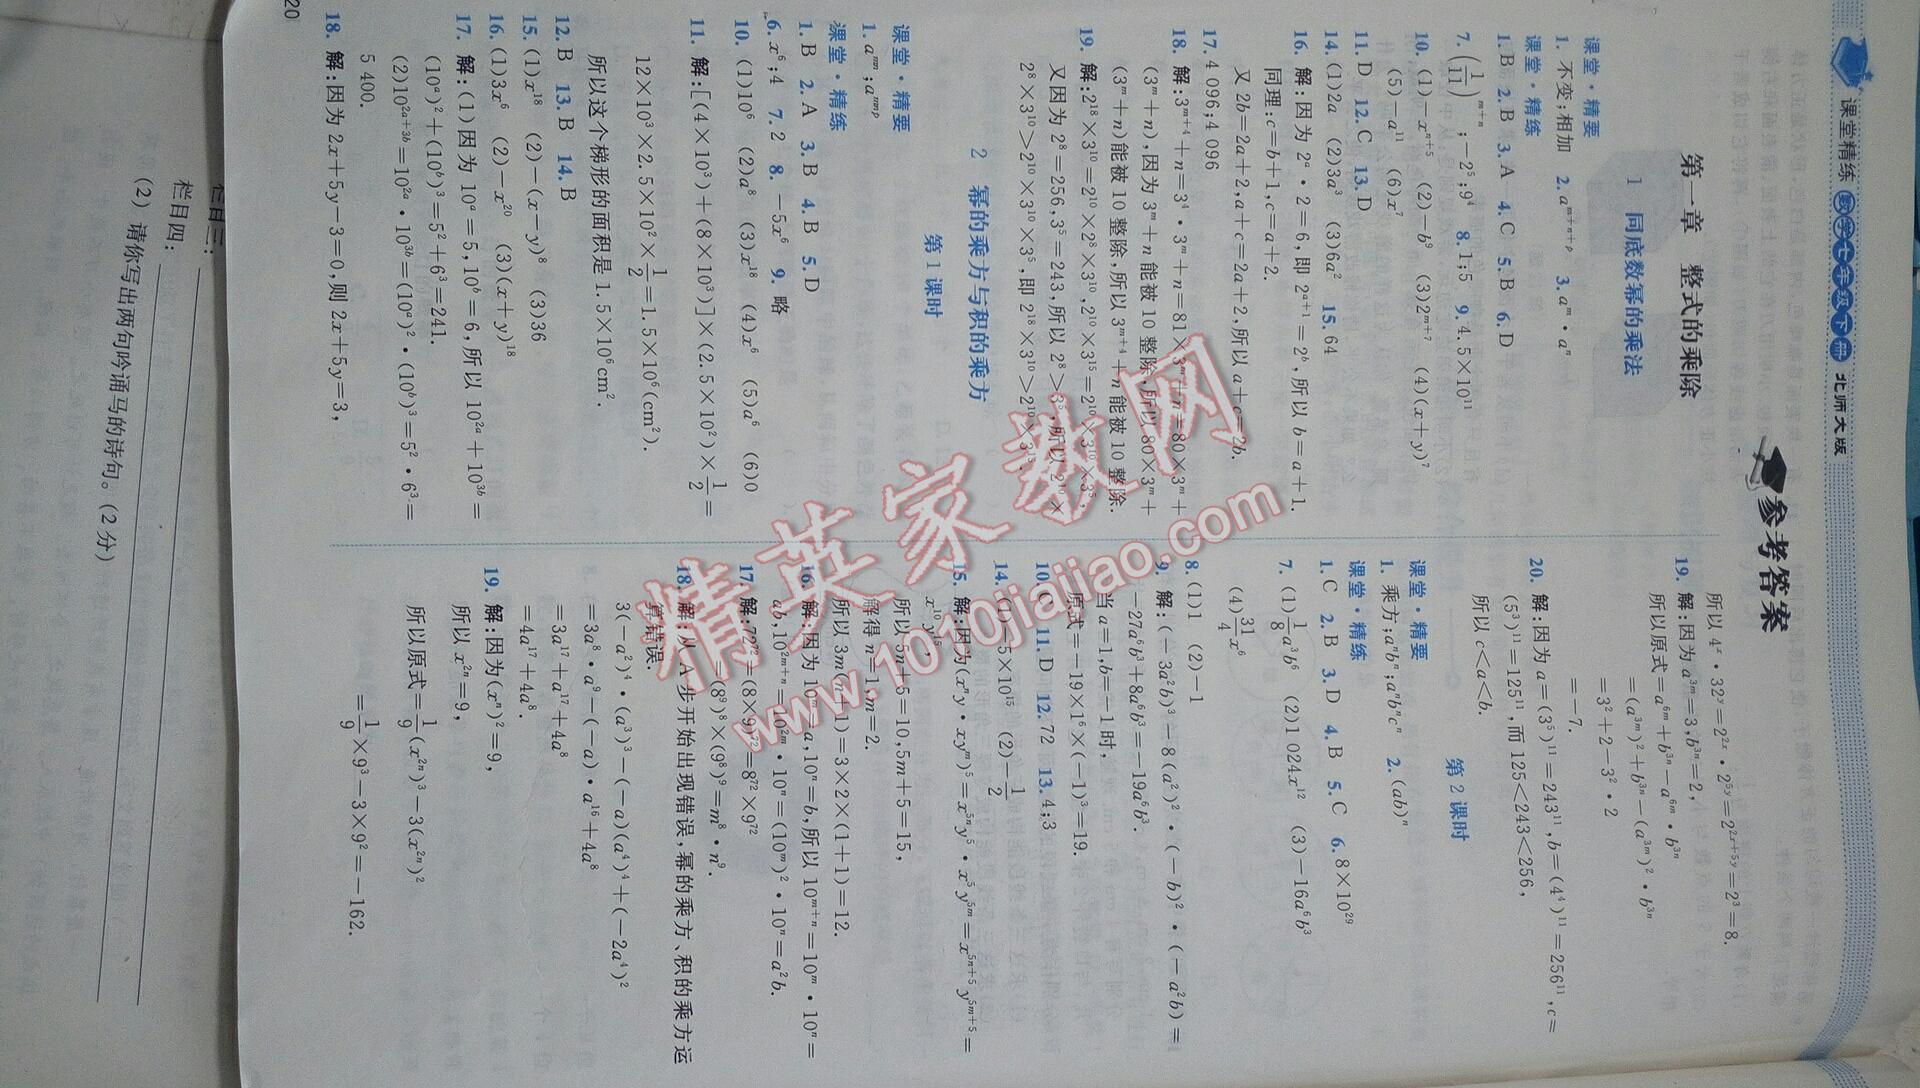 课堂精练 数学七年级下册 北师大版
参考答案
第一章 整式的乘除
1 同底数幂的乘法
课堂·精要
1. 不变;相加 2. a^{m+n+p} 3. a^m·a^n
课堂·精练
1. B 2. B 3. A 4. C 5. B 6. D
7. (1/11)^{m+n};-2^5;9^4 8. 1;5 9. 4.5×10^{11}
10. (1)-x^{n+5} (2)-b^9 (3)2^{m+7} (4)(x+y)^7
(5)-a^{11} (6)x^7
11. D 12. C 13. D
14. (1)2a (2)3a^3 (3)6a^2 15. 64
16. 解:因为 2^a·2=6,即 2^{a+1}=2^b,所以 b=a+1.
同理:c=b+1,c=a+2.
又 2b=2a+2,a+c=2a+2,所以 a+c=2b.
17. 4 096;4 096
18. 解:3^{m+4}+n=3^4·3^m+n=81×3^m+n=80×3^m+
(3^m+n),因为 3^m+n 能被 10 整除,所以 80×3^m+
(3^m+n)能被 10 整除,所以 3^{m+4}+n 能被 10 整除.
19. 解:2^{18}×3^{10}=2^{10}×2^8×3^{10},2^{10}×3^{15}=2^{10}×3^{10}×3^5,
又因为 2^8=256,3^5=243,所以 2^8>3^5,所以 2^{10}×
2^8×3^{10}>2^{10}×3^{10}×3^5,即 2^{18}×3^{10}>2^{10}×3^{15}.
2 幂的乘方与积的乘方
第 1 课时
课堂·精要
1. a^{mn};a^{mnp}
课堂·精练
1. B 2. A 3. B 4. B 5. D
6. x^6;4 7. 2 8. -5x^6 9. 略
10. (1)10^6 (2)a^8 (3)x^{18} (4)x^6 (5)a^6 (6)0
11. 解:[(4×10^3)+(8×10^3)]×(2.5×10^2)×1/2=
12×10^3×2.5×10^2×1/2=1.5×10^6(cm^2).
所以这个梯形的面积是 1.5×10^6cm^2.
12. B 13. B 14. B
15. (1)x^{18} (2)-(x-y)^8 (3)36
16. (1)3x^6 (2)-x^{20} (3)(x+y)^{18}
17. 解:(1)因为 10^a=5,10^b=6,所以 10^{2a}+10^{3b}=
(10^a)^2+(10^b)^3=5^2+6^3=241.
(2)10^{2a+3b}=10^{2a}·10^{3b}=(10^a)^2·(10^b)^3=5^2·6^3=
5 400.
18. 解:因为 2x+5y-3=0,则 2x+5y=3,
所以 4^x·32^y=2^{2x}·2^{5y}=2^{2x+5y}=2^3=8.
19. 解:因为 a^{3m}=3,b^{3n}=2,
所以原式=a^{6m}+b^{3n}-a^{6m}·b^{3n}
=(a^{3m})^2+b^{3n}-(a^{3m})^2·b^{3n}
=3^2+2-3^2·2
=-7.
20. 解:因为 a=(3^5)^{11}=243^{11},b=(4^4)^{11}=256^{11},c=
(5^3)^{11}=125^{11},而 125<243<256,
所以 c<a<b.
第 2 课时
课堂·精要
1. 乘方;a^nb^n;a^nb^nc^n 2. (ab)^n
课堂·精练
1. C 2. B 3. D 4. B 5. C 6. 8×10^{29}
7. (1)1/8 a^3b^6 (2)1 024x^{12} (3)-16a^6b^3
(4)31/4 x^6
8. (1)1 (2)-1
9. 解:(-3a^2b)^3-8(a^2)^2·(-b)^2·(-a^2b)=
-27a^6b^3+8a^6b^3=-19a^6b^3.
当 a=1,b=-1 时,
原式=-19×1^6×(-1)^3=19.
10. C 11. D 12. 72 13. 4;3
14. (1)-5×10^{15} (2)-1/2
15. 解:因为(x^ny·xy^m)^5=x^{5n}y^5·x^5y^{5m}=x^{5n+5}y^{5m+5}=
x^{10}y^{15},
所以 5n+5=10,5m+5=15,
解得 n=1,m=2.
所以 3m(n+1)=3×2×(1+1)=12.
16. 解:因为 10^m=a,10^n=b,所以 10^{m+n}=10^m·10^n=
ab,10^{2m+n}=10^{2m}·10^n=(10^m)^2·10^n=a^2b.
17. 解:72^{72}=(8×9)^{72}=8^{72}×9^{72}
=(8^9)^8×(9^8)^9=m^8·n^9.
18. 解:从 A 步开始出现错误,幂的乘方、积的乘方运
算错误.
3(-a^2)^4·(a^3)^3-(-a)(a^4)^4+(-2a^4)^2
=3a^8·a^9-(-a)·a^{16}+4a^8
=3a^{17}+a^{17}+4a^8
=4a^{17}+4a^8.
19. 解:因为(x^n)^2=9,
所以 x^{2n}=9,
所以原式=1/9(x^{2n})^3-3(x^{2n})^2
=1/9×9^3-3×9^2=-162.
20
栏目三:
栏目四:
(2)请你写出两句吟诵马的诗句。(2 分)
精英家教网
www.1010jiajiao.com